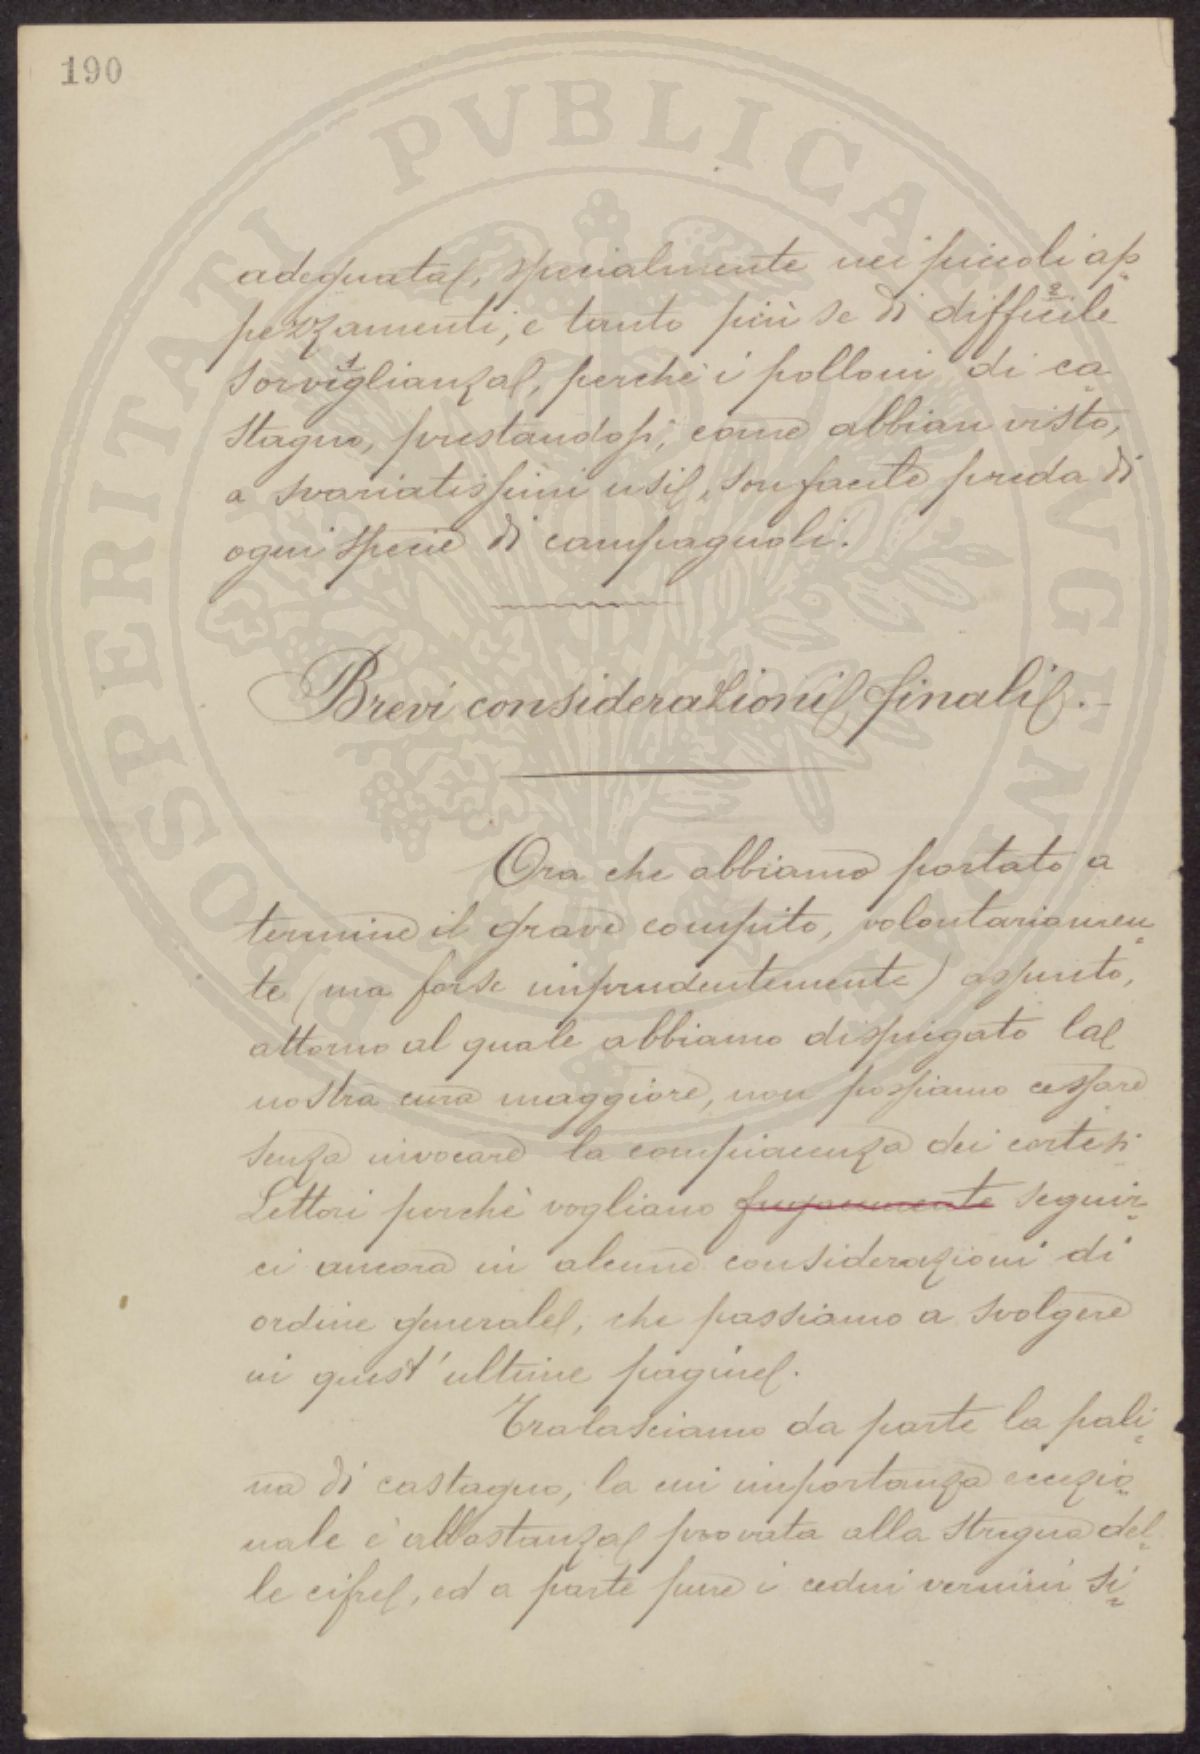 190
PROSPERITATI PVBLICAE AVGENDAE
adeguata, specialmente nei piccoli ap=
pezzamenti, e tanto più se di difficile
sorviglianza, perchè i polloni di ca=
stagno, prestandosi, come abbian visto,
a svariatissimi usi, son facile preda di
ogni specie di campagnoli.
Brevi considerazioni finali.-
Ora che abbiamo portato a
termine il grave compito, volontariamen=
te (ma forse imprudentemente) assunto,
attorno al quale abbiamo dispiegato la
nostra cura maggiore, non possiamo cessare
senza invocare la compiacenza dei cortesi
Lettori perchè vogliano fugacemente seguir=
ci ancora in alcune considerazioni di
ordine generale, che passiamo a svolgere
in quest'ultime pagine.
Tralasciamo da parte la pali=
na di castagno, la cui importanza eccezio=
nale è abbastanza provata alla stregua del=
le cifre, ed a parte pure i cedui vernini si=